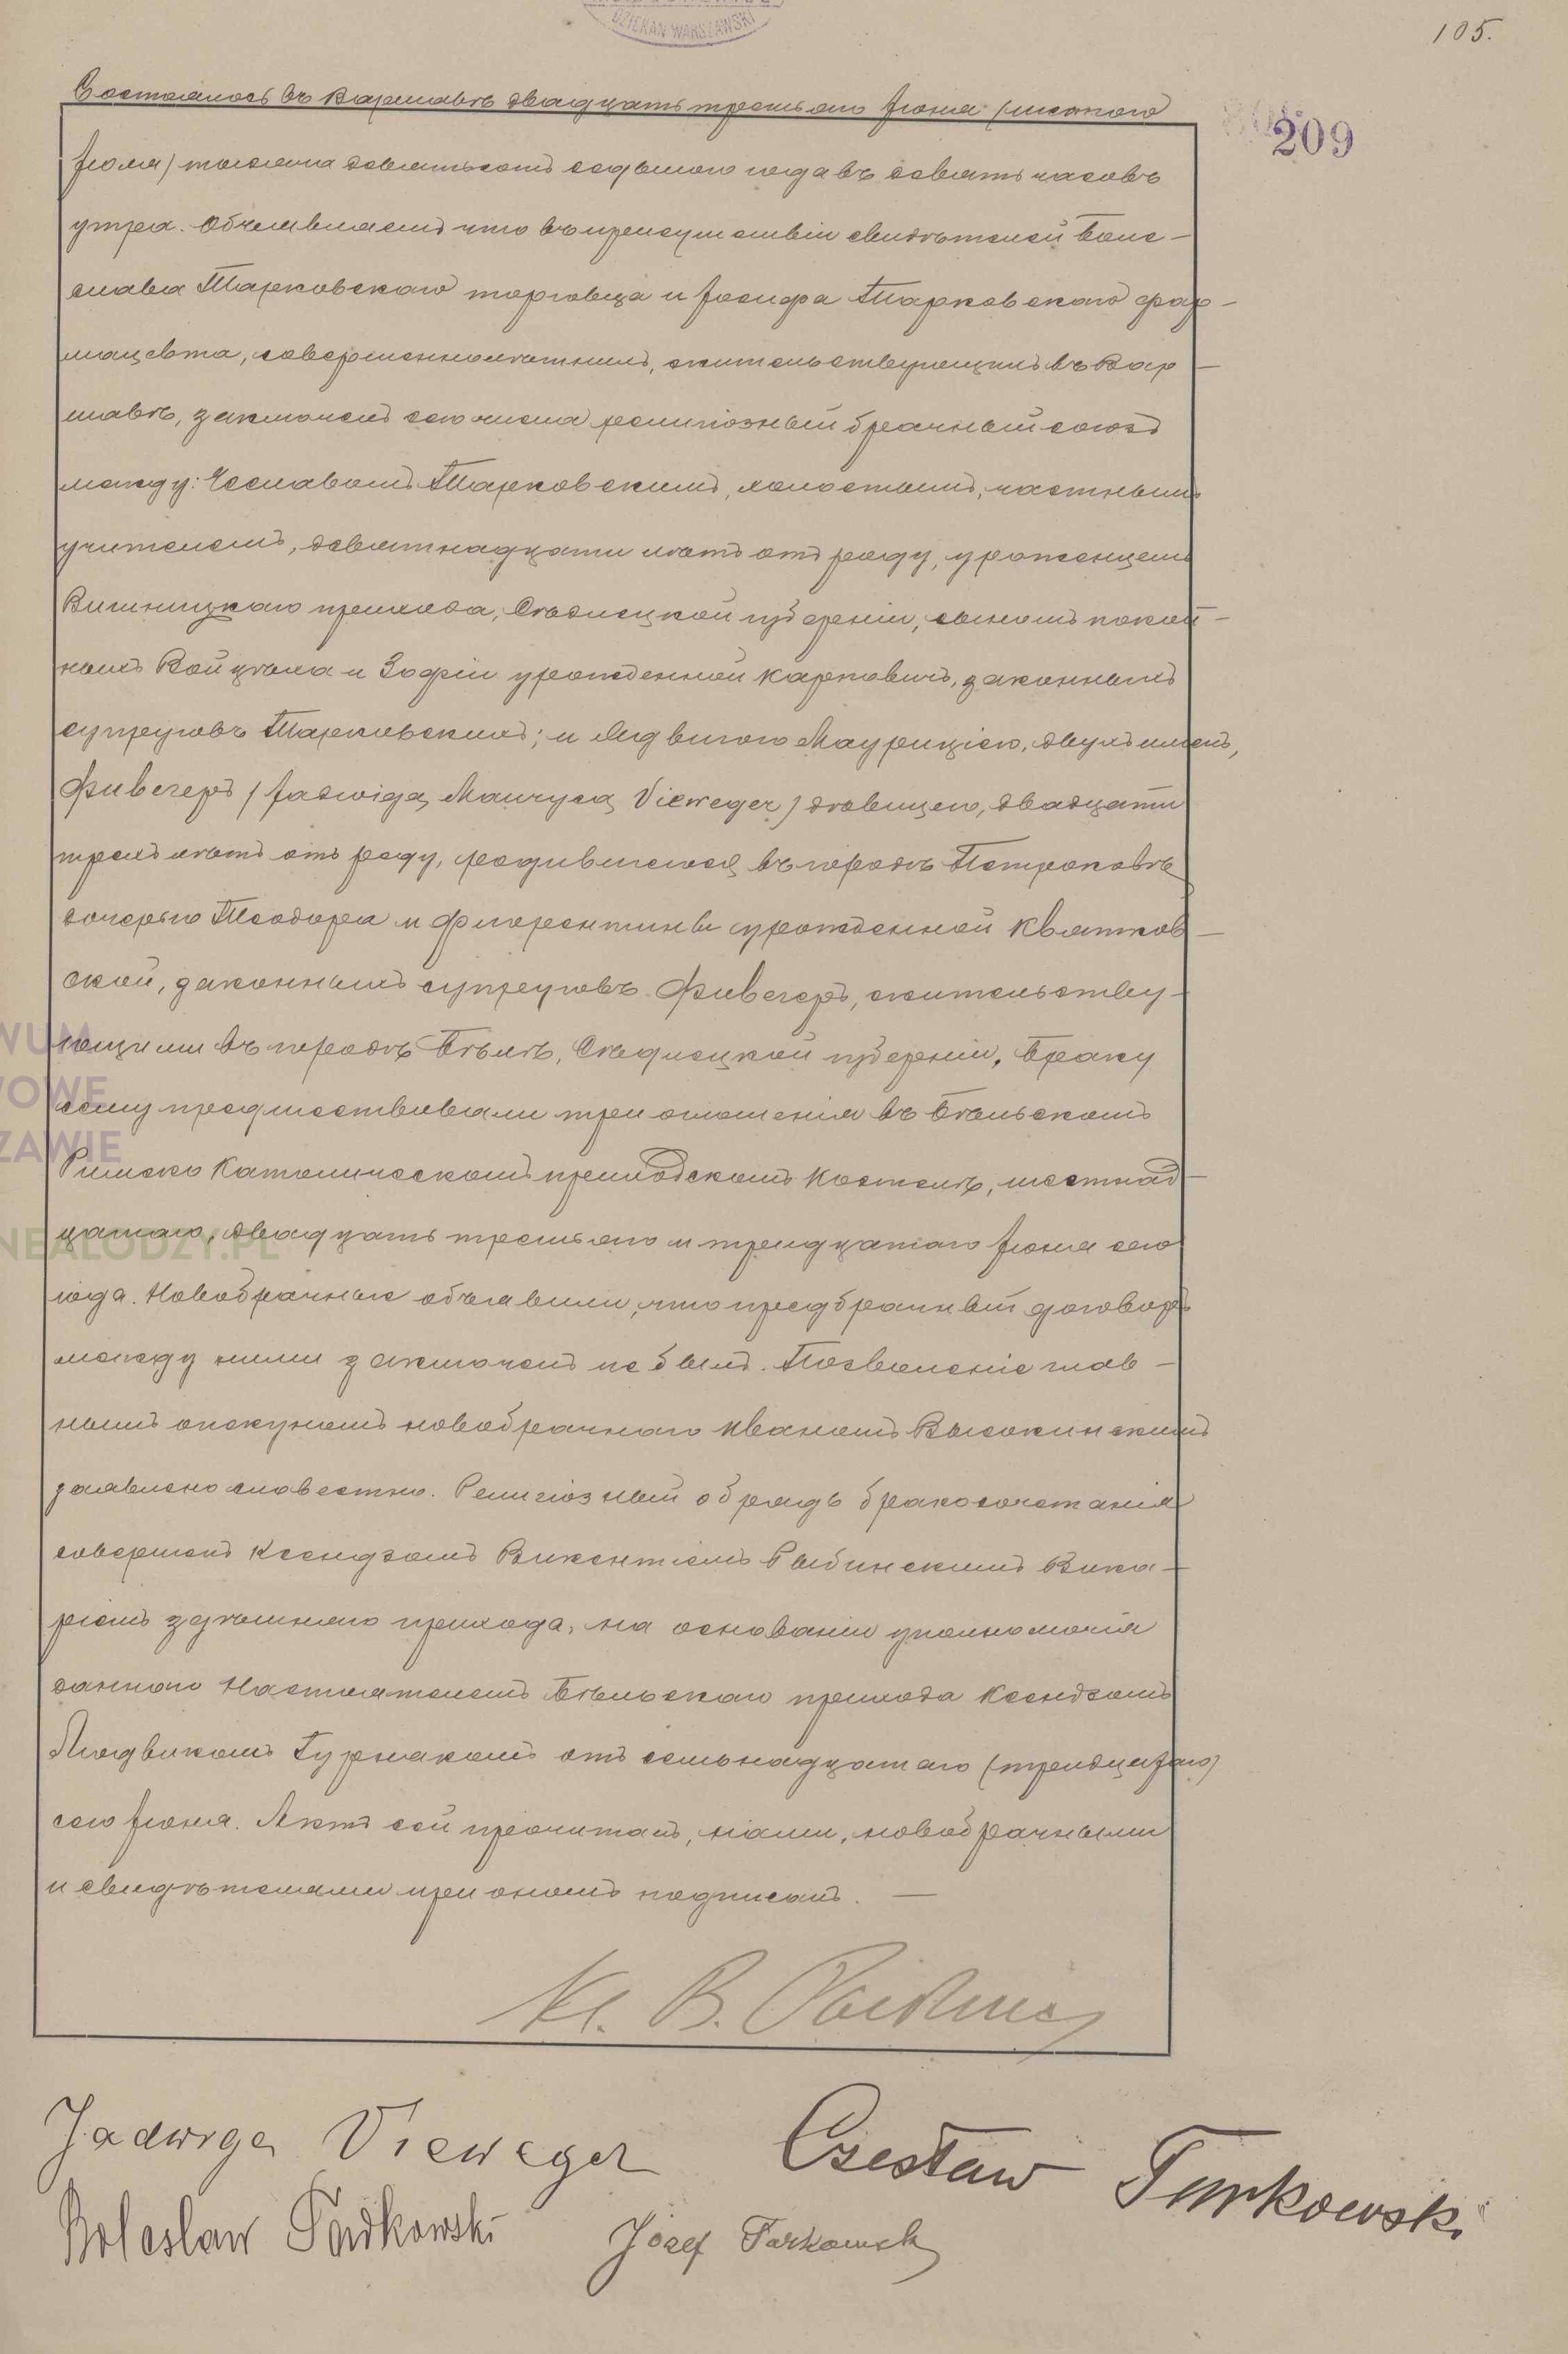 DZIEKAN WARSZAWSKI
105.
209
Состоялось въ Варшавѣ двадцать третьяго Іюня /шестого
Іюля/ тысяча девятьсотъ седьмого года въ девять часовъ
утра. Объявляемъ что въ присутствіи свидѣтелей Боле-
слава Тарковскаго торговца и Іосифа Тарковскаго фар-
мацевта, совершеннолѣтнихъ, жительствующихъ въ Вар-
шавѣ, заключенъ сего числа религіозный брачный союзъ
между: Чеславомъ Тарковскимъ, холостымъ, частнымъ
учителемъ, девятнадцати лѣтъ отъ роду, уроженцемъ
Вишницкаго прихода, Сѣдлецкой губерніи, сыномъ покой-
ныхъ Войцѣха и Зофіи урожденной Карповичъ, законныхъ
супруговъ Тарковскихъ; и Ядвигою Маурицією, двухъ именъ,
Фивегеръ /Jadwiga Maurycą Vieweger/ дѣвицею, двадцати
трехъ лѣтъ отъ роду, родившеюся въ городѣ Петроковѣ
дочерью Теодора и Флорентины урожденной Квятков-
ской, законныхъ супруговъ Фивегеръ, жительству-
ющими въ городѣ Бѣлѣ, Сѣдлецкой губерніи. Браку
сему предшествовали три оглашенія въ Бѣльскомъ
Римско Католическомъ приходскомъ Костелѣ, шестнад-
цатаго, двадцать третьяго и тридцатаго Іюня сего
года. Новобрачные объявили, что предбрачный договоръ
между ними заключенъ не былъ. Позволеніе глав-
нымъ опекуномъ новобрачнаго Иваномъ Высокинскимъ
заявлено словестно. Религіозный обрядъ бракосочетанія
совершенъ Ксендзомъ Викентіемъ Рыбинскимъ Вика-
ріемъ здѣшняго прихода, на основаніи уполномочія
даннаго Настоятелемъ Бѣльскаго прихода Ксендзомъ
Людвикомъ Гурнякомъ отъ семьнадцатаго (тридцатаго)
сего Іюня. Актъ сей прочитанъ, нами, новобрачными
и свидѣтелями при ономъ подписанъ. —
Jadwiga Vieweger Czesław Tarkowski
Bolesław Tarkowski Józef Tarkowski
WUM
WOWE
ZAWIE
NEALODZY.PL